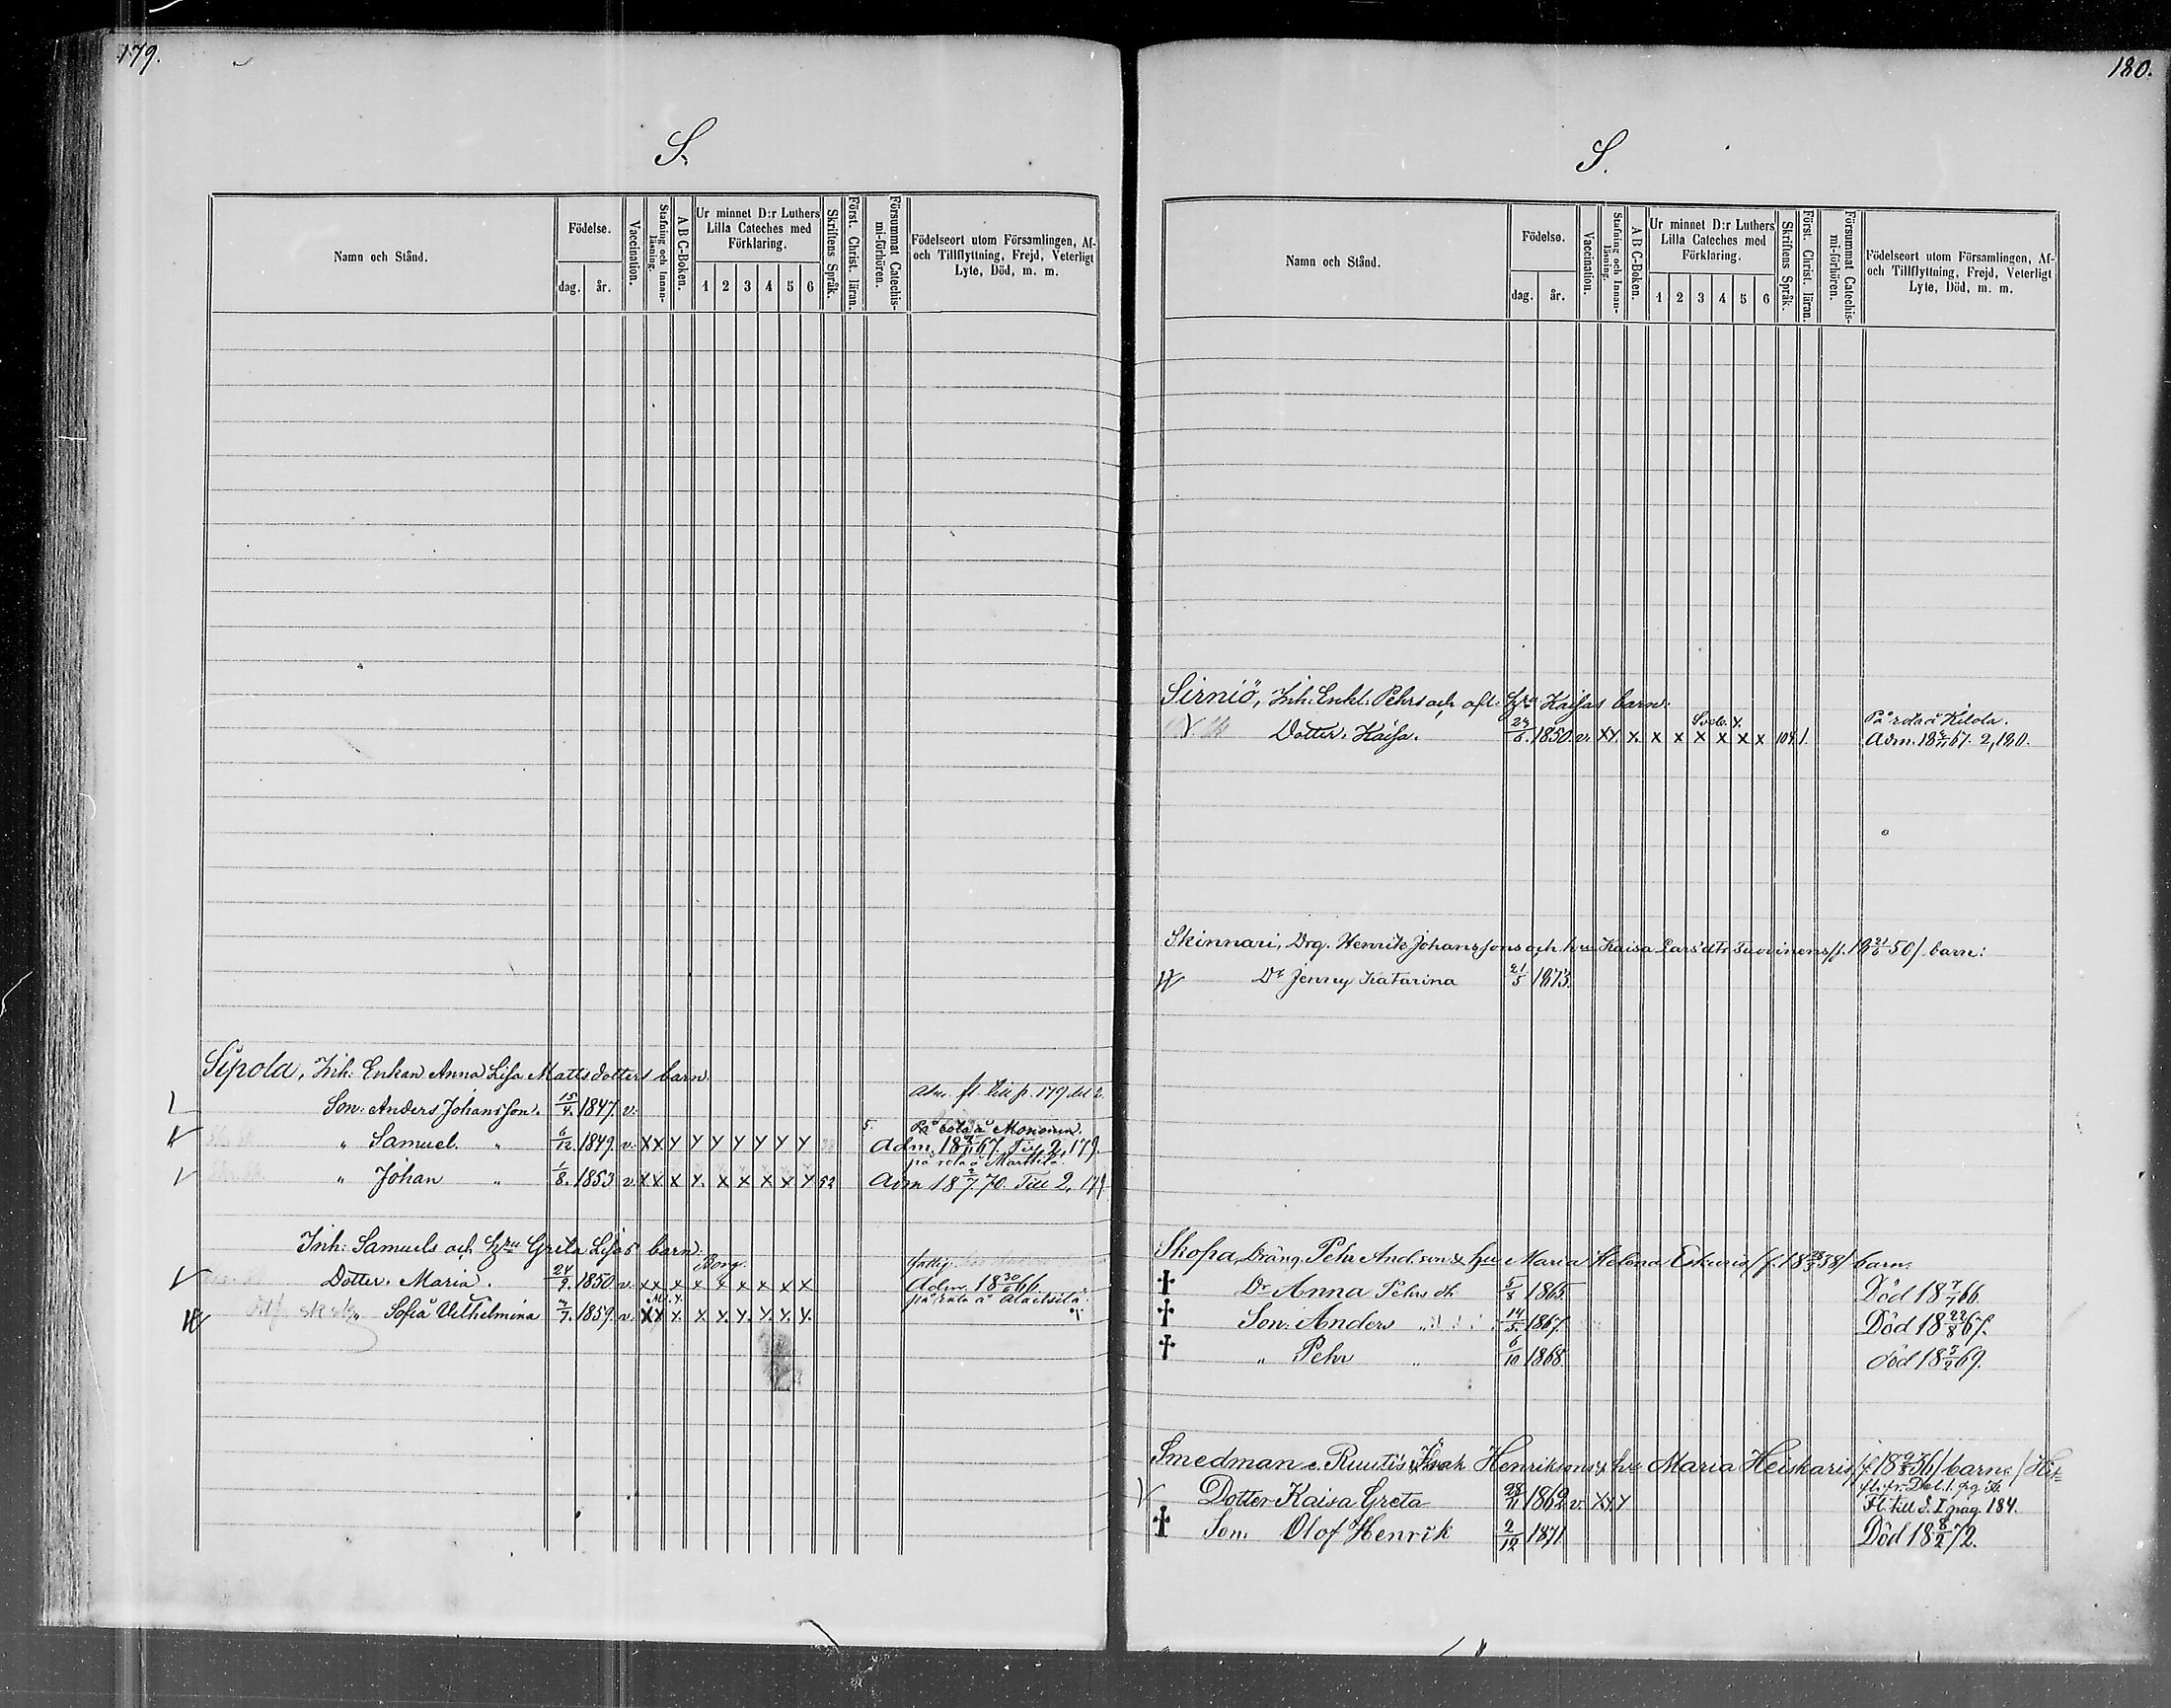 179.
S.
Namn och Stånd.
Födelse.
dag.
år.
Vaccination.
Stafning och Innan-
läsning.
A B C-Boken.
Ur minnet D:r Luthers
Lilla Cateches med
Förklaring.
1 2 3 4 5 6
Skriftens Språk.
Först. Christ. läran.
Försummat Catechis-
mi-förhören.
Födelseort utom Församlingen, Af-
och Tillflyttning, Frejd, Veterligt
Lyte, Död, m. m.
Sipola, Inh: Enkan Anna Lisa Mattsdotters barn.
Son: Anders Johansson. 15/4. 1847. v. fl. till p. 179 del 2.
På rota å Mononen.
" Samuel. " 6/12. 1849. v. X X Y Y Y Y Y Y Y Adm. 18 67. Till 2, 179.
på rota å Marttila.
" Johan " 1/8. 1853 v. X X X Y. X X X X Y 52 Adm 18 2/7 70. Till 2, 179
Inh: Samuels och Hru Greta Lisas barn:
Borg. fattig.
Dotter. Maria. 24/9. 1850. v. X X X X X X X X X Adm. 18 66.
på rota å Alaitsila.
" Sofia Vilhelmina 4/7. 1859. v. X Y Y. X Y. Y. Y. Y. Y.
180.
S.
Namn och Stånd.
Födelse.
dag.
år.
Vaccination.
Stafning och Innan-
läsning.
A B C-Boken.
Ur minnet D:r Luthers
Lilla Cateches med
Förklaring.
1 2 3 4 5 6
Skriftens Språk.
Först. Christ. läran.
Försummat Catechis-
mi-förhören.
Födelseort utom Församlingen, Af-
och Tillflyttning, Frejd, Veterligt
Lyte, Död, m. m.
Sirniö, Inh. Enkl. Pehrs och afl. Hru Kaisas barn.
På rota å Kilola.
Dotter. Kaisa. 1850. v. X Y. Y. X X X X X X 104 1. Adm. 18 67. 2, 180.
Skinnari, Drg. Henrik Johanssons och hru Kaisa Larsdtr Tuovinens /f. 18 50/ barn:
Dr Jenny Katarina 21/5 1873.
Skopa, Dräng. Pehr And.son & hru Maria Helena Eskurio /f. 18 38/ barn.
† Dr Anna Pehrs dr 5/8 1865 Död 18 7/1 66.
† Son: Anders " 14/5. 1867. Död 18 22/8 67.
† " Pehr " 6/10 1868. död 18 5/2 69.
Smedman e. Ruutis Henriksons & hru Maria Heiskaris /f. 18 36/ barn:
Dotter Kaisa Greta 28/11 1862 v. X Y Y Fl. till d. I pag. 184.
† Son: Olof Henrik 2/12 1871 Död 18 8/2 72.